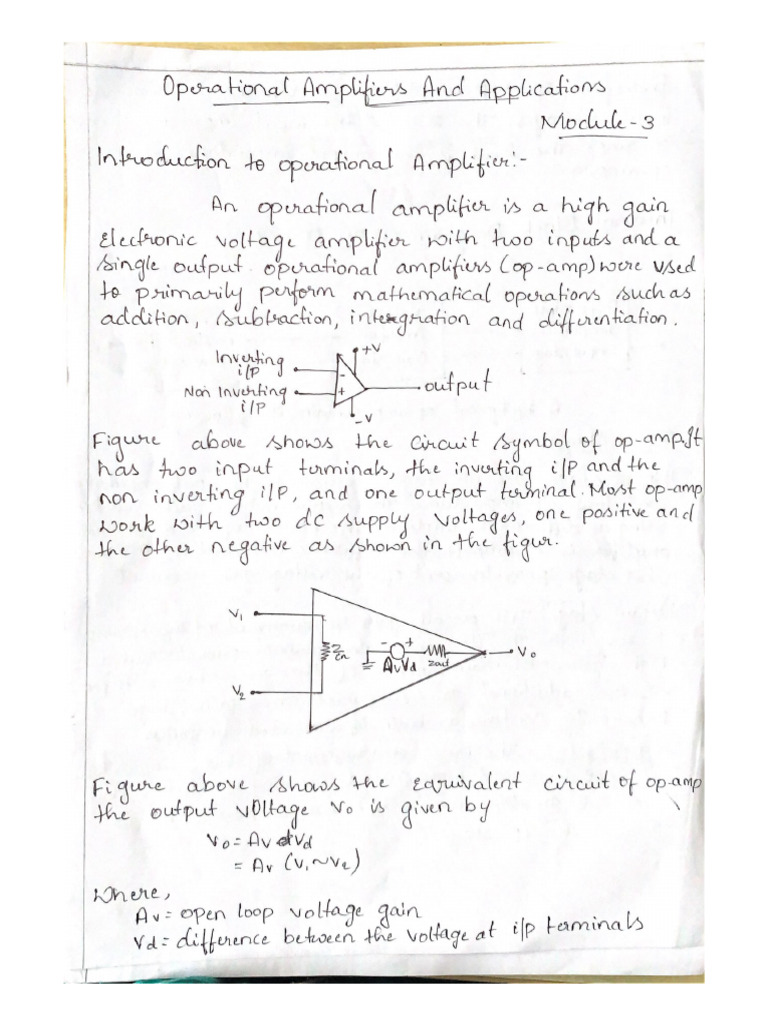 Operational Amplifiers And Applications
Module-3
Introduction to operational Amplifier:-
An operational amplifier is a high gain
Electronic voltage amplifier with two inputs and a
single output. operational amplifiers (op-amp) were used
to primarily perform mathematical operations such as
addition, subtraction, intergration and differentiation.
+V
Inverting
i/p
-
Non Inverting
i/p
+
output
-V
Figure above shows the circuit symbol of op-amp. It
has two input terminals, the inverting i/p and the
non inverting i/p, and one output terminal. Most op-amp
work with two dc supply voltages, one positive and
the other negative as shown in the figur.
V1
Zin
- +
AvVd
Zout
Vo
V2
Figure above shows the equivalent circuit of op-amp
the output voltage Vo is given by
Vo = Av Vd
= Av (V1 ~ V2)
Where,
Av = open loop voltage gain
Vd = difference between the voltage at i/p terminals